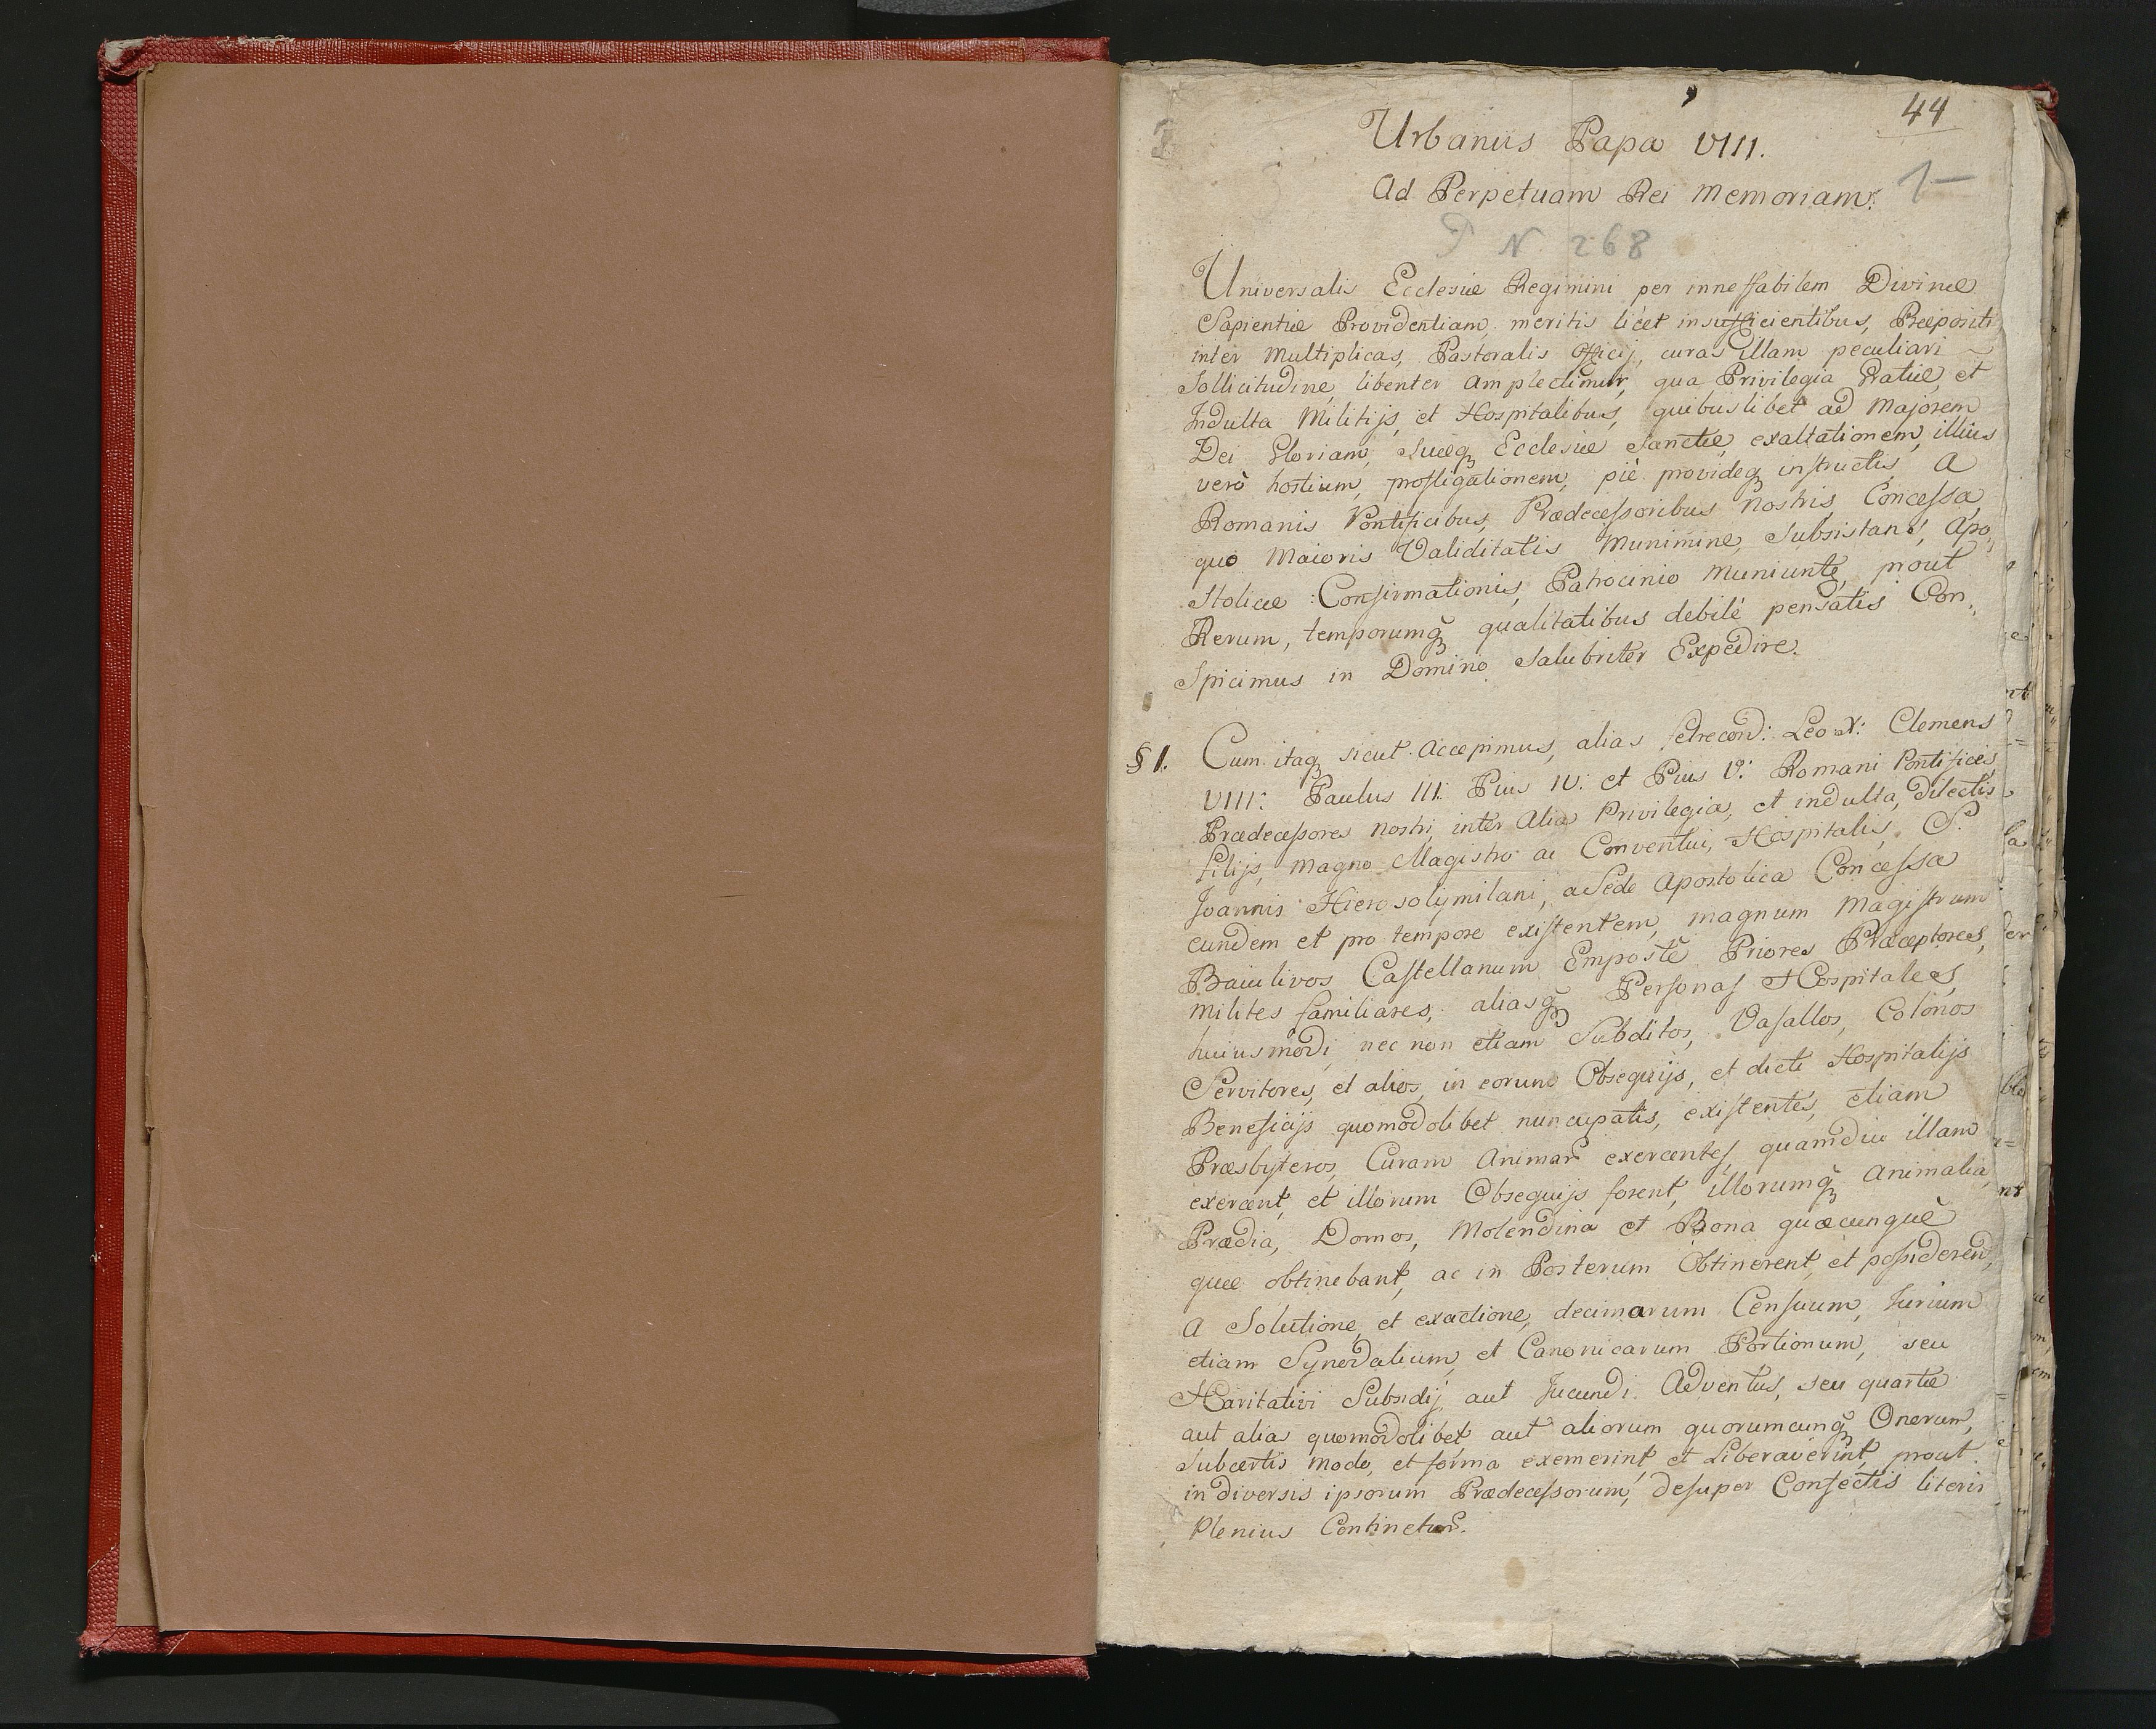 44
Urbanus Papa VIII.
1-
Ad Perpetuam Rei memoriam.
N. 268
Universalis Ecclesiæ Regimini per inneffabilem Divinæ
Sapientiæ Providentiam, meritis licet insufficientibus, Præpositi
inter multiplicas, Pastoralis officij, curas illam peculiari
Sollicitudine, libenter amplectimur, qua Privilegia Gratiæ, et
Indulta Militijs, et Hospitalibus, quibuslibet ad Majorem
Dei Gloriam, Suæq Ecclesiæ Sanctæ, exaltationem, illius
verò hostium, profligationem, piè providèq instructis, A
Romanis Pontificibus, Prædecessoribus nostris, Concessa,
quo Maioris Validitatis Munimine, Subsistant, Apo„
stolicæ Confirmationis, Patrocinio muniunte, prout
Rerum, temporumq qualitatibus debilè pensatis Con„
Spicimus in Domino Salubriter Expedire.
§ 1. Cum itaq sicut accepimus, alias felrecord: Leo X: Clemens
VIII: Paulus III: Pius IV: et Pius V: Romani Pontifices,
Prædecessores nostri, inter Alia Privilegia, et indulta, dilectis
filijs, magno Magistro ac Conventui, Hospitalis, S.
Joannis Hierosolymitani, a Sede Apostolica Concessa
eundem et pro tempore existentem, magnum Magistrum
Baiulivos Castellanum Empostæ Priores Præceptores,
milites familiares, aliasq Personas Hospitales,
huiusmodi, nec non etiam Subditos, Vasallos, Colonos
Servitores, et alios, in eorum Obsequijs, et dicti Hospitalijs
Beneficijs quomodolibet nuncupatis, existentes, etiam
Præsbyteros, Curam Animar exercentes, quamdiu illam
exercent, et illorum Obsequijs forent, illorumq animalia,
Prædia, Domos, Molendina et Bona quæcunquè
quæ obtinebant, ac in Posterum Obtinerent, et possiderend,
A Solutione, et exactione, decimarum Censuum, Jurium
etiam Synodalium, et Canonicarum Portionum, seu
Haritativi Subsidij, aut Jucundi Adventus, seu quartæ
aut alia quomodolibet aut aliorum quorumcunq Onerum,
Subcertis modo, et forma exemerint, et Liberaverint, prout
in diversis ipsorum Prædecessorum, desuper Confectis literis
Plenius Continetur.